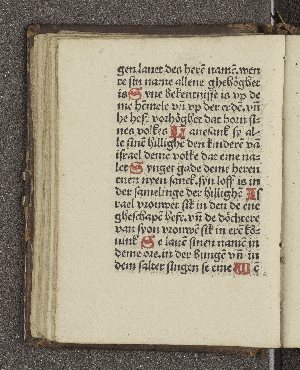 gen lauet des herē namē. wen
te sin name allene ghehögbet
is Syne bekentnisse is vp de
me hēmele vn̄ vp der erdē. vn̄
he hef. vorhögbet dat horn si
nes volkes Lauesank sy al-
le sinē hillighē den kinderē vā
israel deme volke dat eme na-
let Synget gade deme heren
enen nyen sanck. syn loff is in
der samelinge der hillighē Is
rael vrouwet sik in den de ene
gheschapē heft. vn̄ de döchtere
van syon vrouwē sik in erē kö-
nink Se lauē sinen namē in
deme ore. in der bungē vn̄ in
dem salter singen se eme Wē